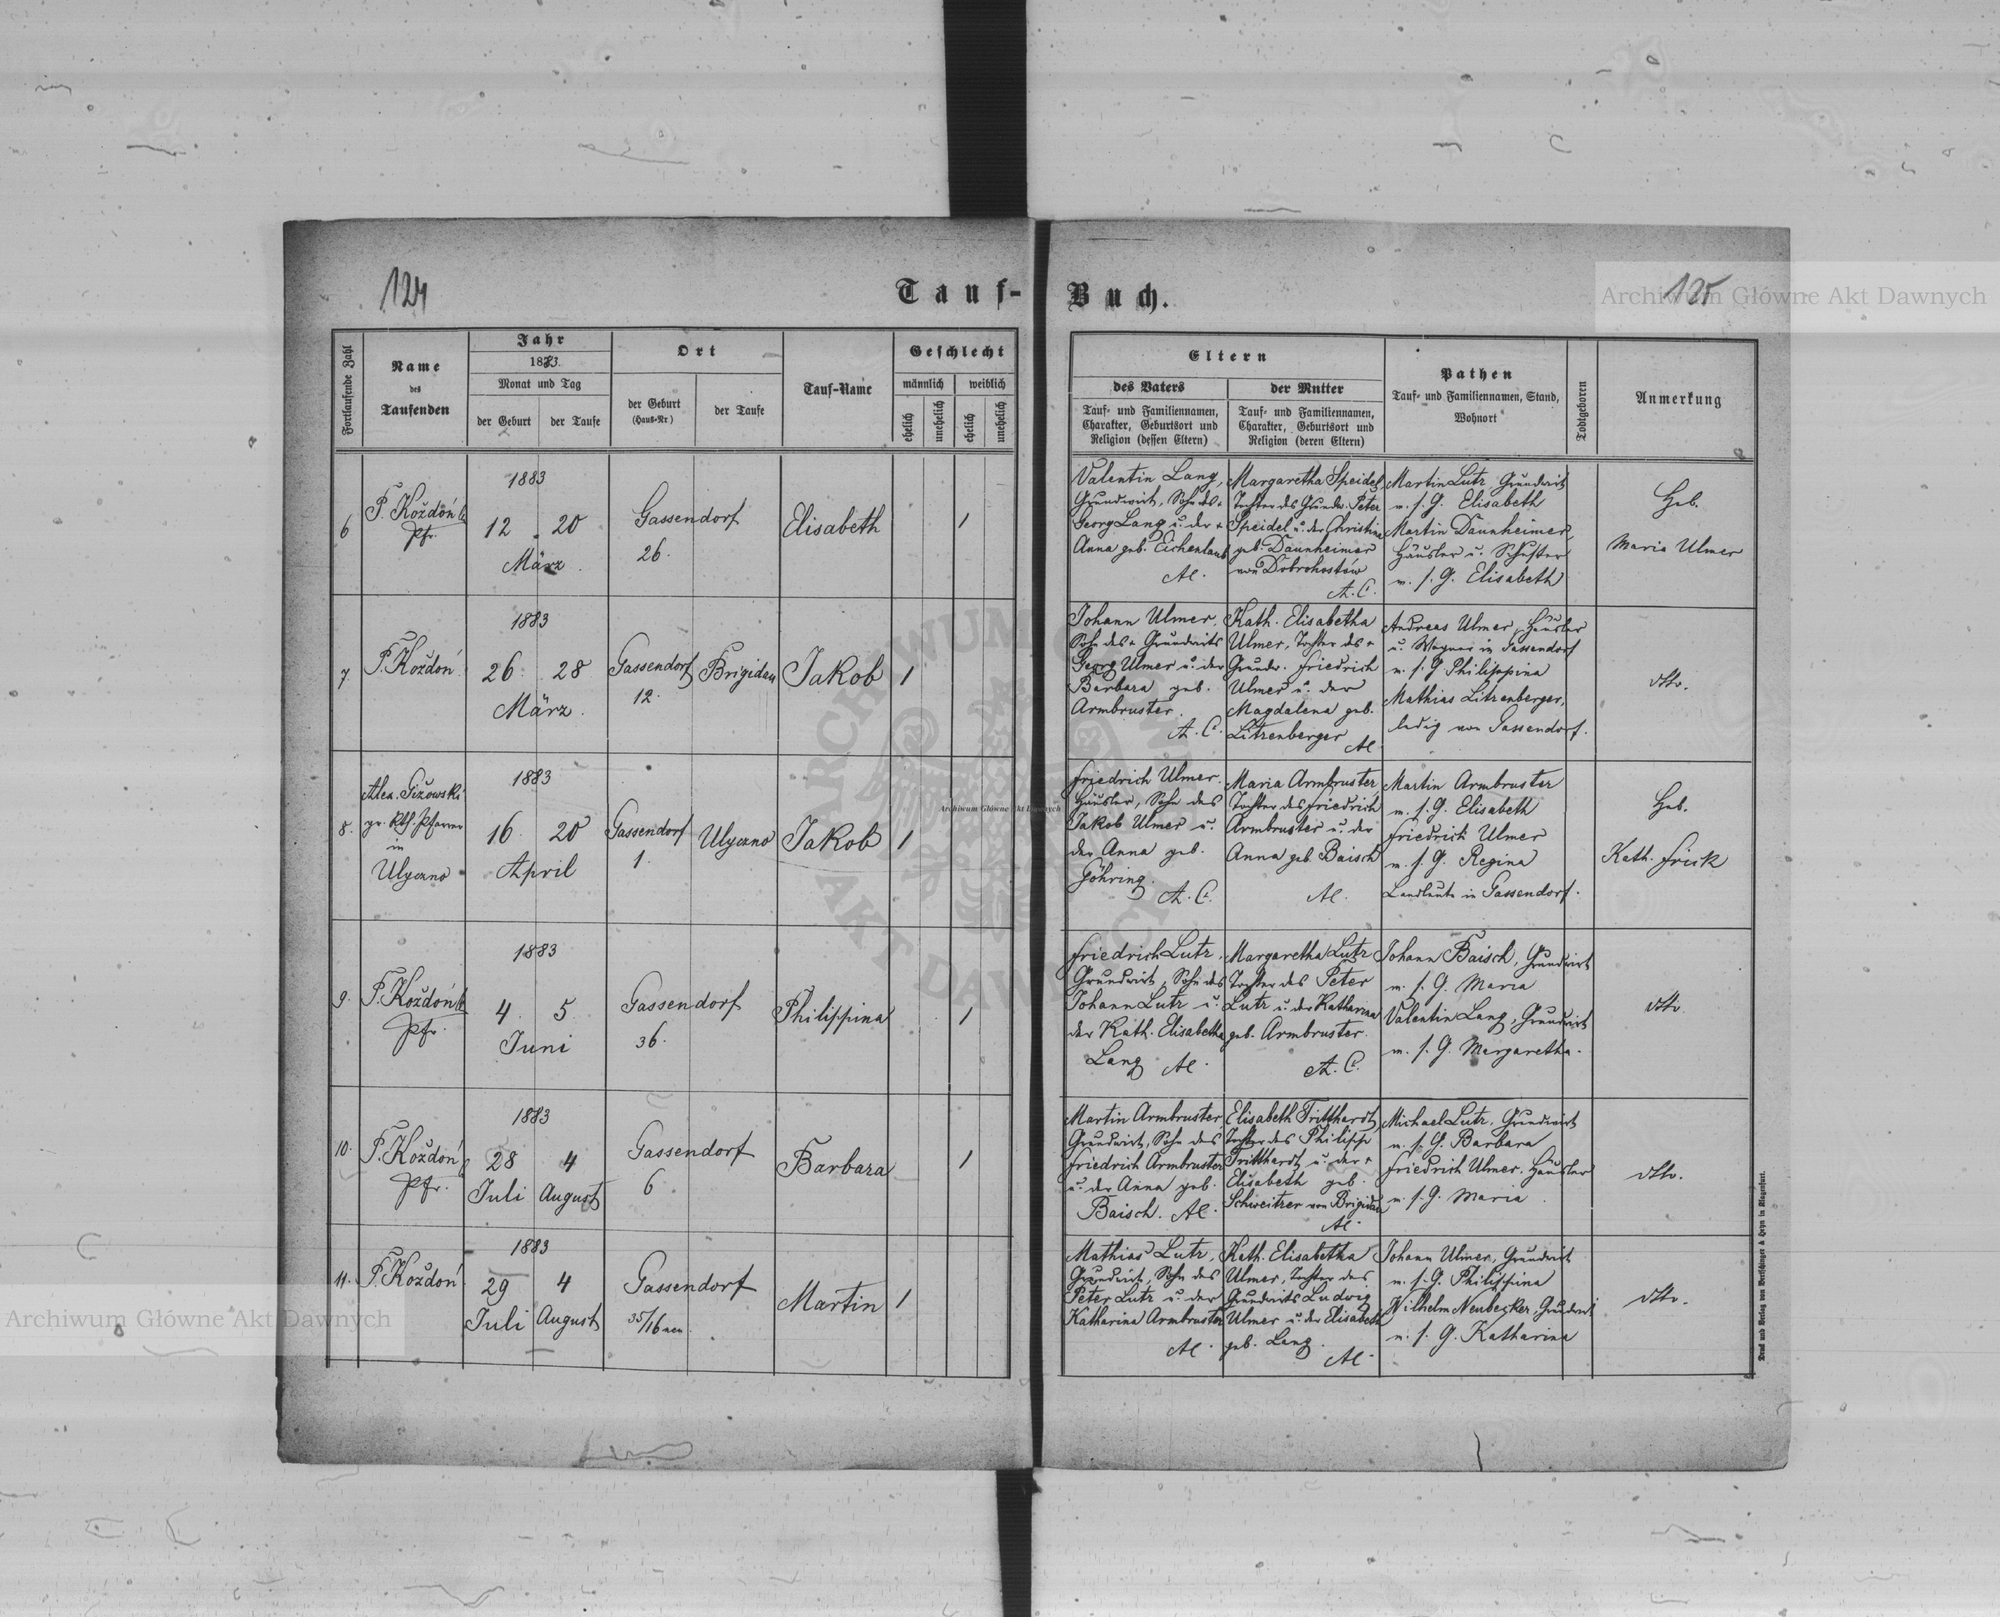 124
Tauf-
Buch.
125
Archiwum Główne Akt Dawnych
Fortlaufende Zahl
Name
des
Taufenden
Jahr
1883.
Monat und Tag
der Geburt
der Taufe
Ort
der Geburt
(Haus-Nr.)
der Taufe
Tauf-Name
Geschlecht
männlich
weiblich
ehelich
unehelich
ehelich
unehelich
Eltern
des Vaters
Tauf- und Familiennamen,
Charakter, Geburtsort und
Religion (dessen Eltern)
der Mutter
Tauf- und Familiennamen,
Charakter, Geburtsort und
Religion (deren Eltern)
Pathen
Tauf- und Familiennamen, Stand,
Wohnort
Todtgeboren
Anmerkung
6
P. Koždoń
Pfr.
1883
12. 20
März
Gassendorf
26.
Elisabeth
1
Valentin Lang,
Grundwirt, Sohn des +
Georg Lang u. der +
Anna geb. Eichenlaub
A.C.
Margaretha Speidel,
Tochter des Grundw. Peter
Speidel u. der Christina
geb. Daunheimer
von Dobrohostów
A.C.
Martin Lutz Grundwirt
m. s. G. Elisabeth
Martin Daunheimer,
Häusler u. Schuster
m. s. G. Elisabeth
Heb.
Maria Ulmer
7
P. Koždoń
1883
26. 28
März.
Gassendorf
12.
Brigidau
Jakob
1
Johann Ulmer,
Sohn des + Grundwirts
Georg Ulmer u. der
Barbara geb.
Armbruster.
A.C.
Kath. Elisabetha
Ulmer, Tochter des +
Grundw. Friedrich
Ulmer u. der
Magdalena geb.
Litzenberger
A.C.
Andreas Ulmer, Häusler
u. Wagner in Gassendorf
m. s. G. Philippina
Mathias Litzenberger,
ledig von Gassendorf.
dtto.
8.
Alex. Gižowski
gr. kth. Pfarrer
in
Ulyczno
1883
16 20
April
Gassendorf
1.
Ulyczno
Jakob
1
Friedrich Ulmer.
Häusler, Sohn des
Jakob Ulmer u.
der Anna geb.
Göhring.
A.C.
Maria Armbruster
Tochter des Friedrich
Armbruster u. der
Anna geb. Baisch
A.C.
Martin Armbruster
m. s. G. Elisabeth
Friedrich Ulmer
m. s. G. Regina
Landleute in Gassendorf.
Heb.
Kath. Frick
9.
P. Koždoń
Pfr.
1883
4. 5.
Juni
Gassendorf
36.
Philippina
1
Friedrich Lutz,
Grundwirt, Sohn des
Johann Lutz u.
der Kath. Elisabetha
Lang A.C.
Margaretha Lutz
Tochter des Peter
Lutz u. der Katharina
geb. Armbruster.
A.C.
Johann Baisch, Grundwirt
m. s. G. Maria
Valentin Lang, Grundwirt
m. s. G. Margaretha.
dtto
10.
P. Koždoń
Pfr.
1883
28 4
Juli August
Gassendorf
6.
Barbara
1
Martin Armbruster
Grundwirt, Sohn des
Friedrich Armbruster
u. der Anna geb.
Baisch. A.C.
Elisabeth Tritthardt,
Tochter des Philipp
Tritthardt u. der +
Elisabeth geb.
Schweitzer von Brigidau
A.C.
Michael Lutz, Grundwirt
m. s. G. Barbara
Friedrich Ulmer, Häusler
m. s. G. Maria.
dtto.
11.
P. Koždoń
1883
29 4
Juli August
Gassendorf
35/16 neu.
Martin
1
Mathias Lutz,
Grundwirt, Sohn des
Peter Lutz u. der
Katharina Armbruster
A.C.
Kath. Elisabetha
Ulmer, Tochter des
Grundwirts Ludwig
Ulmer u. der Elisabeth
geb. Lang.
A.C.
Johann Ulmer, Grundwirt
m. s. G. Philippina
Wilhelm Neubecker, Grundwirt
m. s. G. Katharina
dtto.
Druck und Verlag von Bertschinger & Heyn in Klagenfurt.
Archiwum Główne Akt Dawnych
Archiwum Główne Akt Dawnych